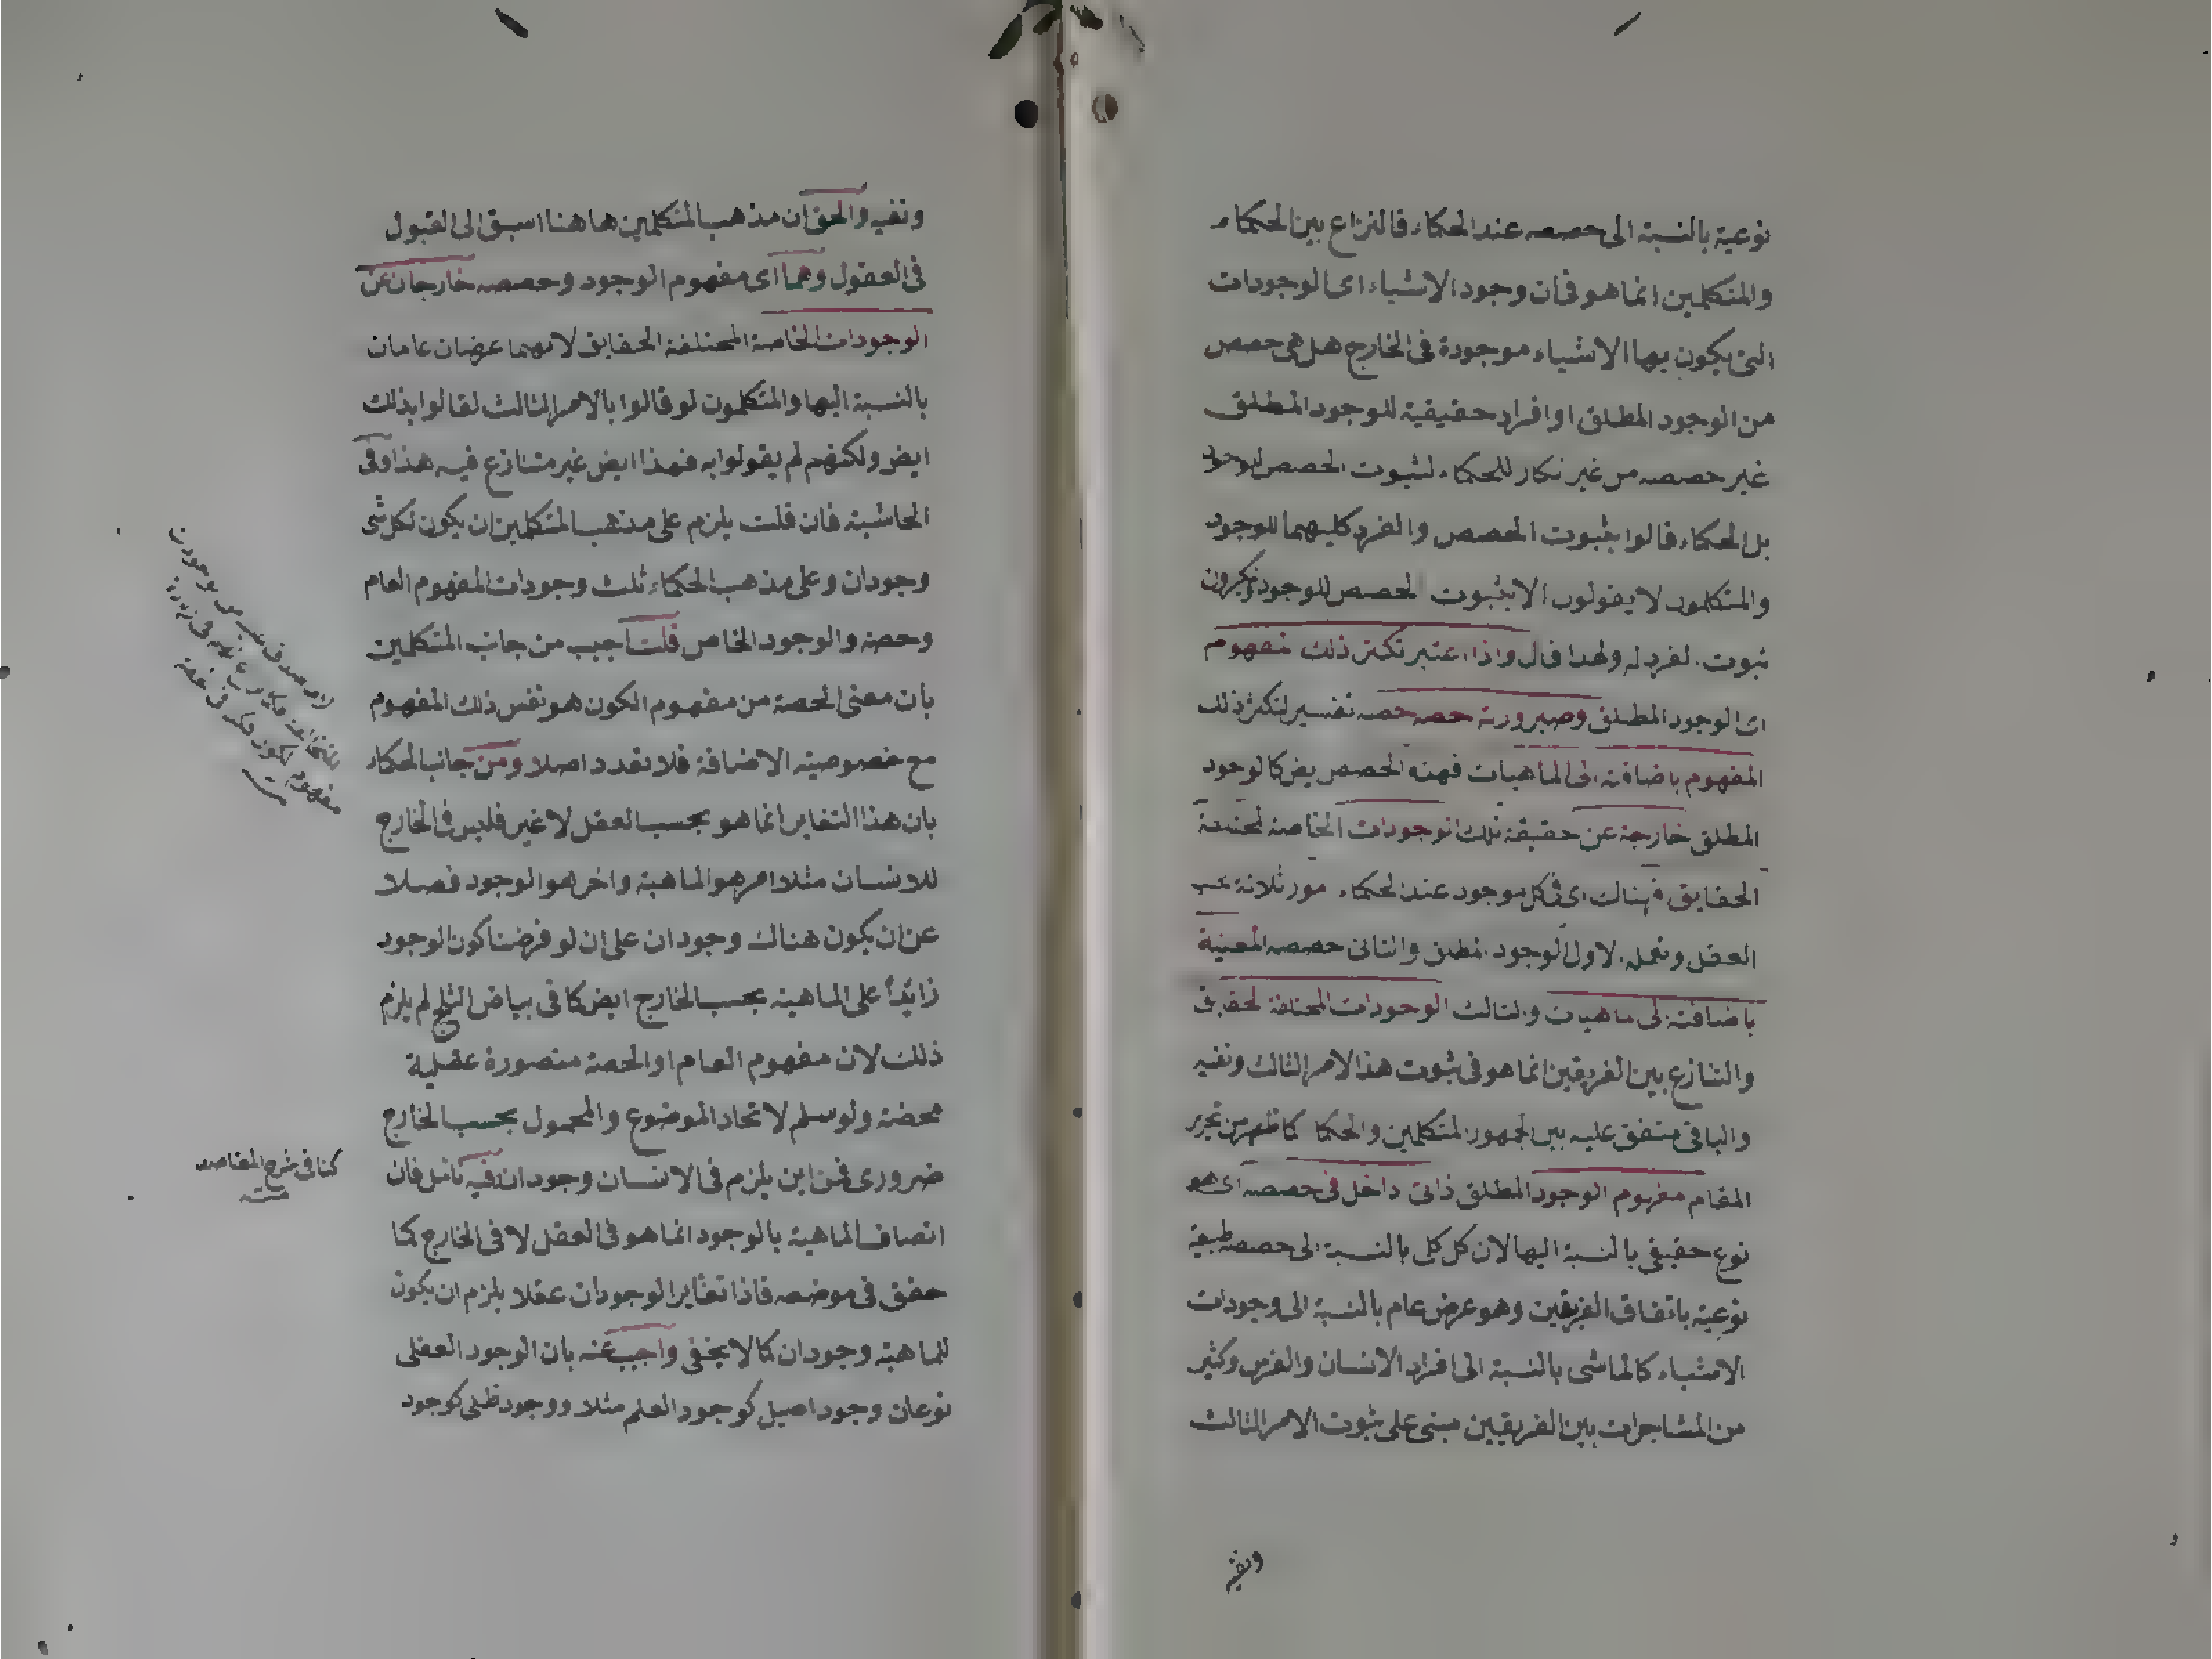 نوعية بالنسبة الى حصصه عند الحكماء فالنزاع بين الحكماء
والمتكلمين انما هو فى ان وجود الاشياء اى الوجودات
التى يكون بها الاشياء موجودة فى الخارج هل هى حصص
من الوجود المطلق او افراد حقيقية للوجود المطلق
غير حصصه من غير نكار للحكماء لثبوت الحصص للوجود
بل الحكماء قالوا بثبوت الحصص والفرد كليهما للوجود
والمتكلمون لا يقولون الا بثبوت الحصص للوجود وينكرون
ثبوت الفرد له ولهذا قال واذا اعتبر تكثر ذلك المفهوم
اى الوجود المطلق وصيرورته حصه حصه تفسير لتكثر ذلك
المفهوم باضافته الى الماهيات فهذه الحصص ايض كالوجود
المطلق خارجة عن حقيقة تلك الوجودات الخاصة المختلفة
الحقايق فهناك اى فى كل موجود عند الحكماء امور ثلاثة عند
العقل وتعمله الاول الوجود المطلق والثانى حصصه المعينة
باضافته الى ماهيات والثالث الوجودات المختلفة الحقايق
والتنازع بين الفريقين انما هو فى ثبوت هذا الامر الثالث ونفيه
والباقى متفق عليه بين الجمهور المتكلمين والحكما كما ظهر من تحرير
المقام مفهوم الوجود المطلق ذاتى داخل فى حصصه اى هو
نوع حقيقى بالنسبة اليها لان كل كلى بالنسبة الى حصصه طبيعة
نوعية باتفاق الفريقين وهو عرض عام بالنسبة الى وجودات
الاشياء كالماشى بالنسبة الى افراد الانسان والفرس وكثير
من المشاجرات بين الفريقين مبنى على ثبوت الامر الثالث
ونفيه
ونفيه والحق ان مذهب المتكلمين هاهنا اسبق الى القبول
فى العقول وهما اى مفهوم الوجود وحصصه خارجان عن
الوجودات الخاصة المختلفة الحقايق لانهما عرضان عامان
بالنسبة اليها والمتكلمون لو قالوا بالامر الثالث لقالوا بذلك
ايض ولكنهم لم يقولوا به فهذا ايض غير متنازع فيه هذا وفى
الحاشية فان قلت يلزم على مذهب المتكلمين ان يكون لكل شى
وجودان وعلى مذهب الحكماء ثلث وجودات المفهوم العام
وحصة والوجود الخاص قلت اجيب من جانب المتكلمين
بان معنى الحصة من مفهوم الكون هو نفس ذلك المفهوم
مع خصوصية الاضافة فلا تعدد اصلا ومن جانب الحكماء
بان هذا التغاير انما هو بحسب العقل لا غير فليس فى الخارج
للانسان مثلا امر هو الماهية واخر هو الوجود فضلا
عن ان يكون هناك وجودان على ان لو فرضنا كون الوجود
زائدا على الماهية بحسب الخارج ايض كما فى بياض الثلج لم يلزم
ذلك لان مفهوم العام او الحصة متصورة عقلية
محضة ولو سلم لاتحاد الموضوع والمحمول بحسب الخارج
ضرورى فمن اين يلزم فى الانسان وجودان فيه تامل فان
اتصاف الماهية بالوجود انما هو فى العقل لا فى الخارج كما
حقق فى موضعه فاذا تغاير الوجودان عقلا يلزم ان يكون
للماهية وجودان كما لا يخفى واجيب عنه بان الوجود العقلى
نوعان وجود اصيل كوجود العلم مثلا ووجود ظلى كوجود
كذا فى شرح المقاصد
منه